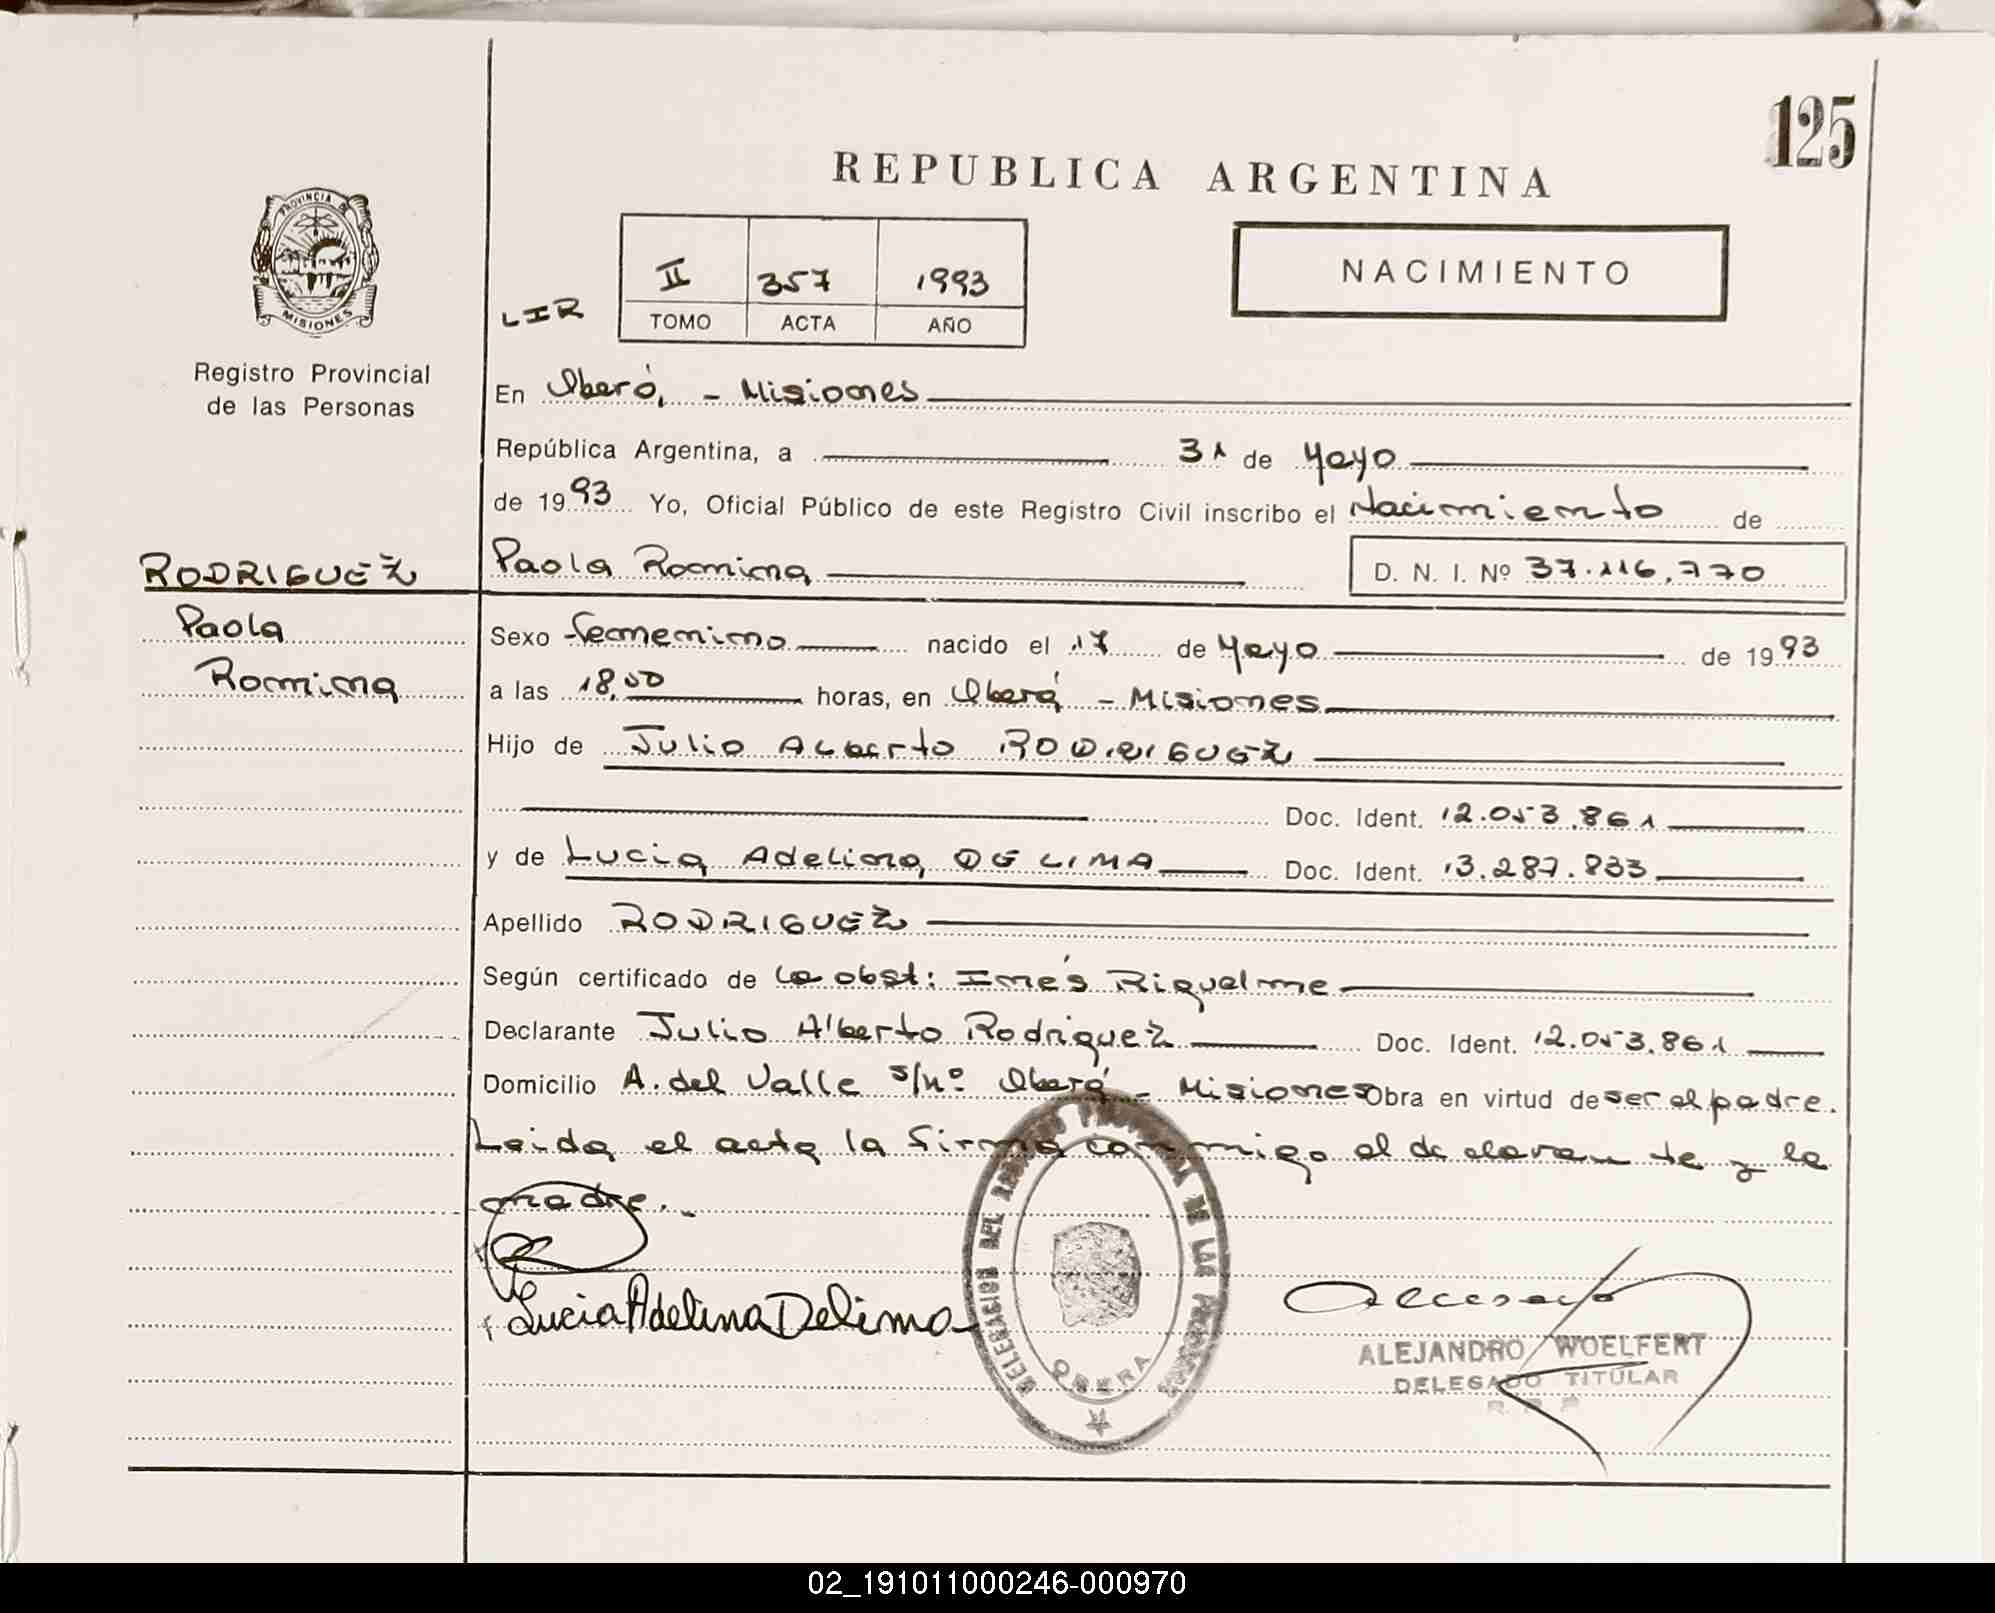 125
REPUBLICA ARGENTINA
PROVINCIA DE
MISIONES
Registro Provincial
de las Personas
LIR
II 357 1993
TOMO ACTA AÑO
NACIMIENTO
En Oberá, - Misiones
República Argentina, a 31 de Mayo
de 1993 Yo, Oficial Público de este Registro Civil inscribo el Nacimiento de
RODRIGUEZ Paola Romina D. N. I. Nº 37.116.770
Paola
Romina
Sexo femenino nacido el 17 de Mayo de 1993
a las 18,50 horas, en Oberá - Misiones
Hijo de Julio Alberto RODRIGUEZ
Doc. Ident. 12.053.861
y de Lucia Adelina DE LIMA Doc. Ident. 13.287.833
Apellido RODRIGUEZ
Según certificado de la obst: Inés Riquelme
Declarante Julio Alberto Rodriguez Doc. Ident. 12.053.861
Domicilio A. del Valle s/nº Oberá - Misiones Obra en virtud de ser el padre.
Leida el acta la firma conmigo el declarante y la
madre.-
Lucia Adelina Delima
DELEGACION DEL REGISTRO PROVINCIAL DE LAS PERSONAS
OBERA
ALEJANDRO WOELFERT
DELEGADO TITULAR
R. P. P.
02_191011000246-000970